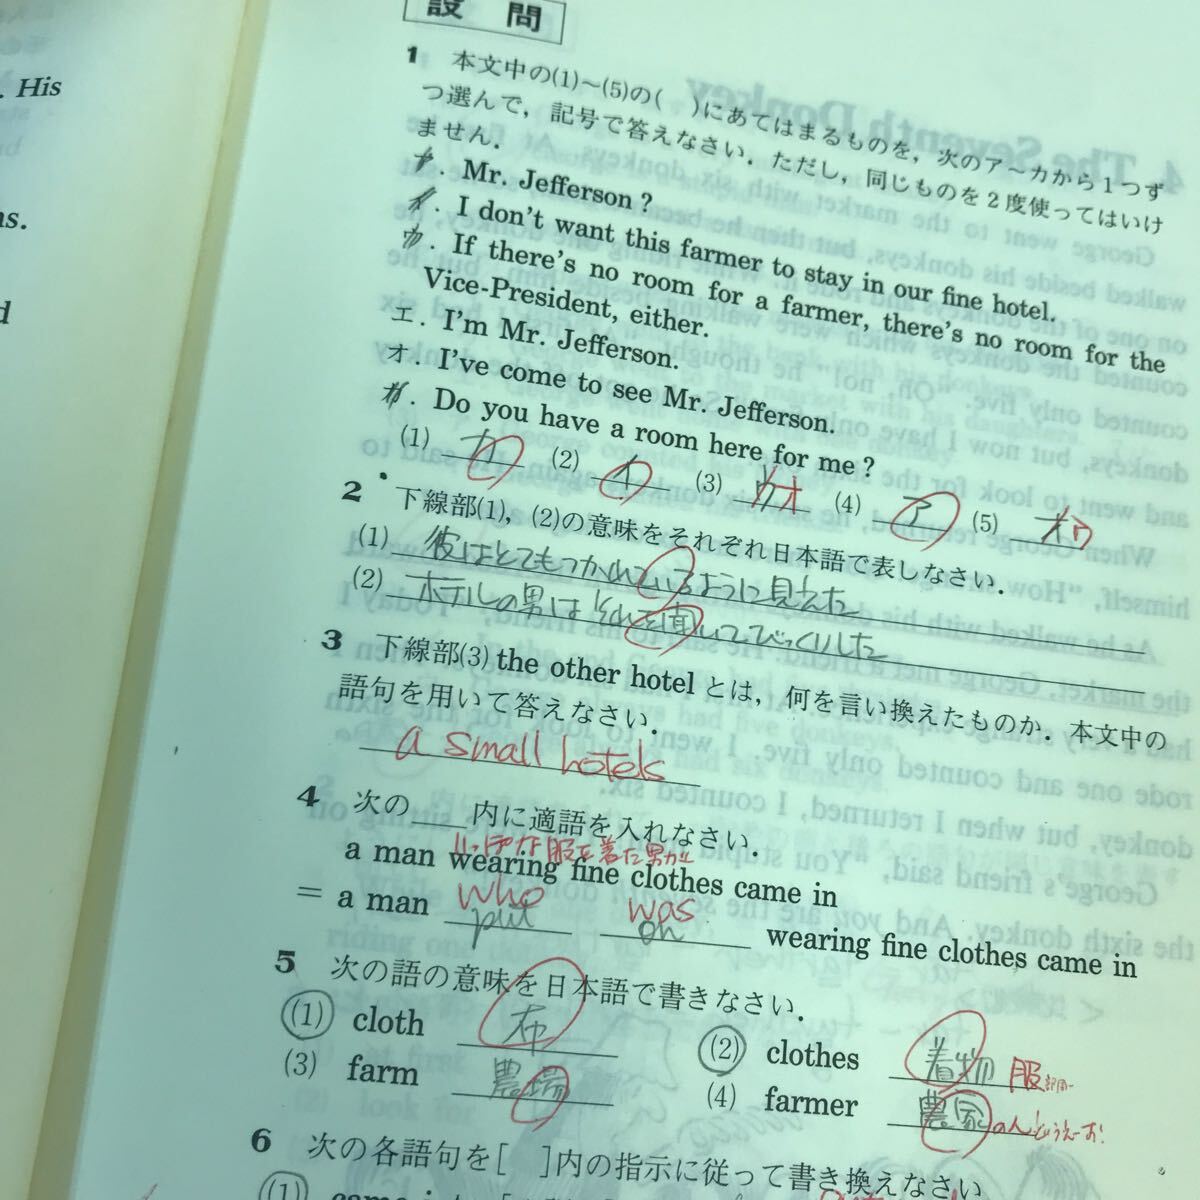 . His
設問
1 本文中の(1)〜(5)の( )にあてはまるものを，次のア〜カから1つず
つ選んで，記号で答えなさい．ただし，同じものを2度使ってはいけ
ません．
ア. Mr. Jefferson?
イ. I don't want this farmer to stay in our fine hotel.
ウ. If there's no room for a farmer, there's no room for the
Vice-President, either.
エ. I'm Mr. Jefferson.
オ. I've come to see Mr. Jefferson.
カ. Do you have a room here for me?
(1) カ (2) イ (3) ウ オ (4) ア (5) オ ウ
2 下線部(1)，(2)の意味をそれぞれ日本語で表しなさい．
(1) 彼はとてもつかれているように見えた
(2) ホテルの男はそれを聞いてびっくりした
3 下線部(3) the other hotel とは，何を言い換えたものか．本文中の
語句を用いて答えなさい．
a small hotels
4 次の＿＿内に適語を入れなさい．
a man wearing fine clothes came in
服を着た男が
who was
= a man put on wearing fine clothes came in
5 次の語の意味を日本語で書きなさい．
(1) cloth 布 (2) clothes 着物 服
(3) farm 農場 (4) farmer 農家の人
6 次の各語句を[ ]内の指示に従って書き換えなさい
(1)